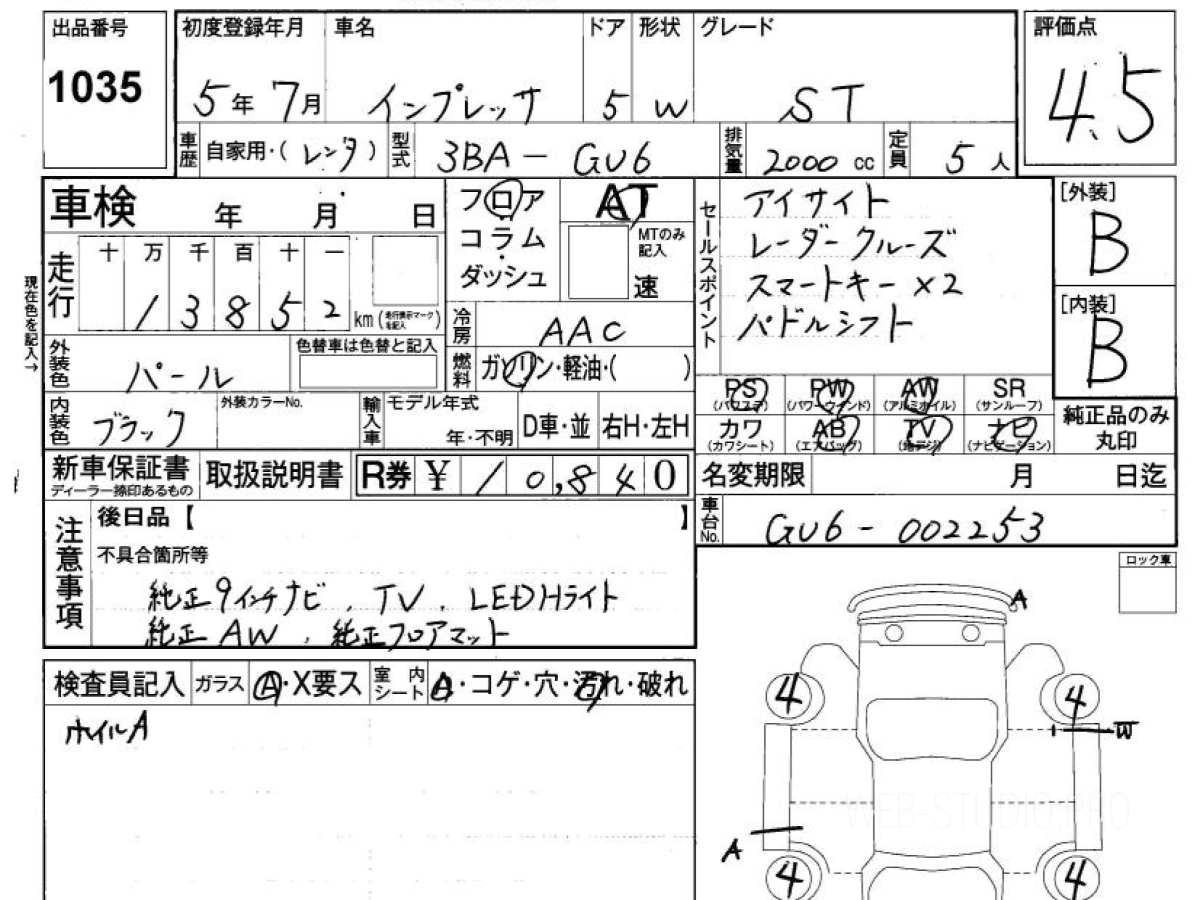 出品番号
1035
初度登録年月
5年 7月
車名
インプレッサ
ドア
5
形状
W
グレード
ST
評価点
4.5
車歴
自家用・( レンタ )
型式
3BA - GU6
排気量
2000 cc
定員
5 人
車検
年 月 日
フロア
コラム
ダッシュ
AT
MTのみ記入
速
セールスポイント
アイサイト
レーダークルーズ
スマートキー×2
パドルシフト
[外装]
B
[内装]
B
現在色を記入→
走行
十 万 千 百 十 一
1 3 8 5 2 km (走行表示マークを記入)
冷房
AAC
外装色
パール
色替車は色替と記入
燃料
ガソリン・軽油・( )
PS (パワステ)
PW (パワーウィンド)
AW (アルミホイル)
SR (サンルーフ)
カワ (カワシート)
AB (エアバッグ)
TV (地デジ)
ナビ (ナビゲーション)
純正品のみ丸印
内装色
ブラック
外装カラーNo.
輸入車
モデル年式
年・不明
D車・並
右H・左H
新車保証書
ディーラー捺印あるもの
取扱説明書
R券 ¥ 10,840
名変期限
月 日迄
車台No.
GU6 - 002253
注意事項
後日品【 】
不具合箇所等
純正9インチナビ . TV . LEDHライト
純正AW . 純正フロアマット
ロック車
検査員記入
ガラス
A・X要ス
室内シート
A・コゲ・穴・汚れ・破れ
ホイルA
A
4
4
W
A
4
4
WEB-STUDIO.PRO